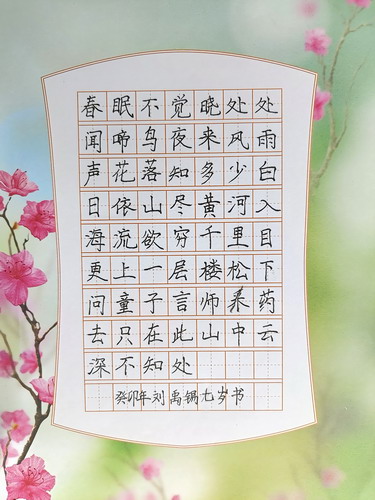 春眠不觉晓处处
闻啼鸟夜来风雨
声花落知多少白
日依山尽黄河入
海流欲穷千里目
更上一层楼松下
问童子言师采药
去只在此山中云
深不知处
癸卯年刘禹锡七岁书